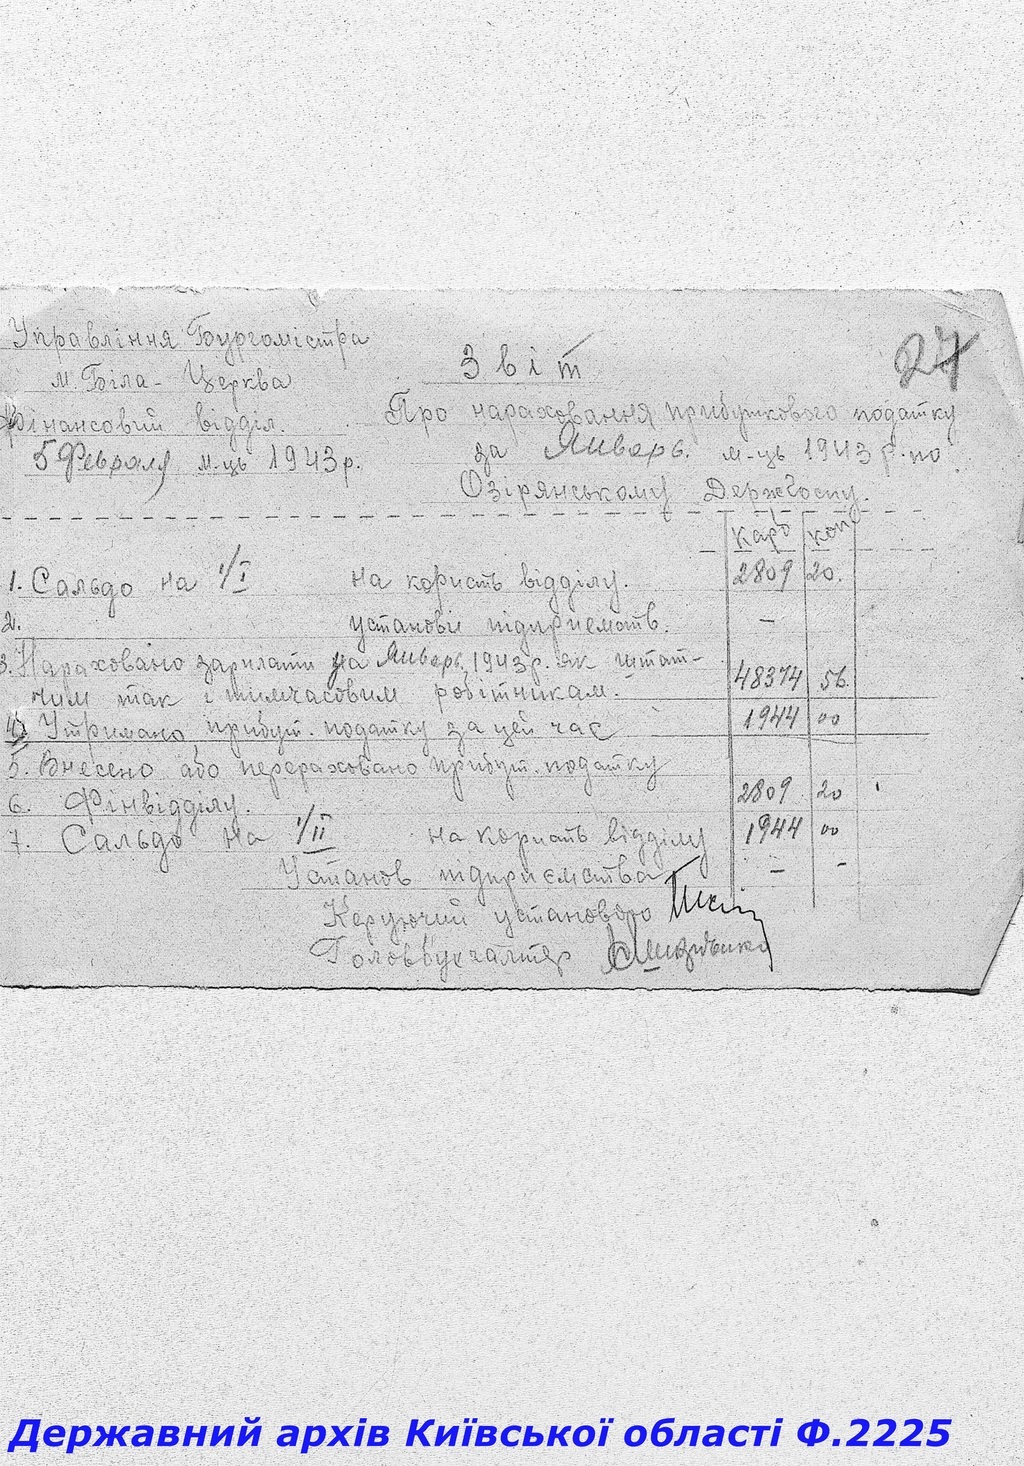 Управління Бургомістра
м. Біла-Церква
Фінансовий відділ.
5 Февраля м-ць 1943 р.
27
Звіт
Про нараховання прибуткового податку
за Январь. м-ць 1943 р. по
Озірянському Держгоспу.
карб коп
1. Сальдо на 1/I на користь відділу. 2809 20.
2. установи підприємств. —
3. Нараховано зарплати за Январь 1943 р. як штат-
ним так і тимчасовим робітникам. 48374 56.
4. Утримано прибут. податку за цей час 1944 00
5. Внесено або перераховано прибут. податку
6. Фінвідділу. 2809 20
7. Сальдо на 1/II на користь відділу 1944 00
Установ підприємства — -
Керуючий установою
Головбухгалтер
Державний архів Київської області Ф.2225